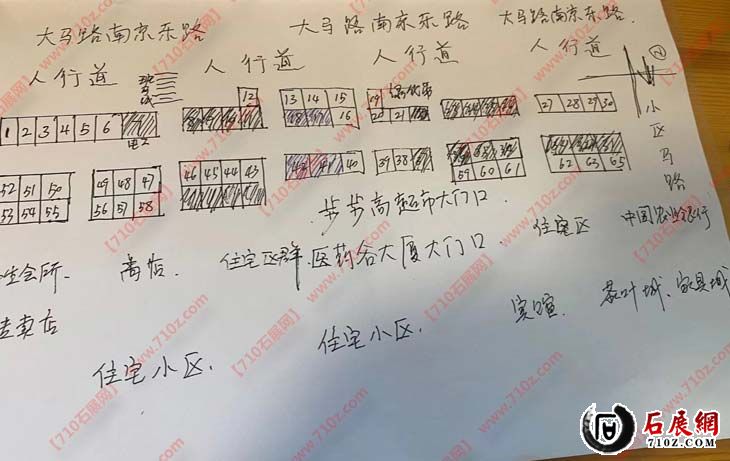 大马路南京东路 大马路南京东路 大马路南京东路.
人行道 人行道 人行道 人行道
12 13 14 15 19 27 28 29 30 小区马路
1 2 3 4 5 6 16 20 21
52 51 50 49 48 47 46 45 44 43 40 39 38 62 63 65
53 54 55 56 57 58 59 60 61
步步高超市大门口
会所. 住宅区群. 医药谷大厦大门口 住宅区 中国农业银行
专卖店 宾馆. 茶叶城、家具城
住宅小区. 住宅小区.
石展網
710Z.COM
【710石展网】www.710z.com